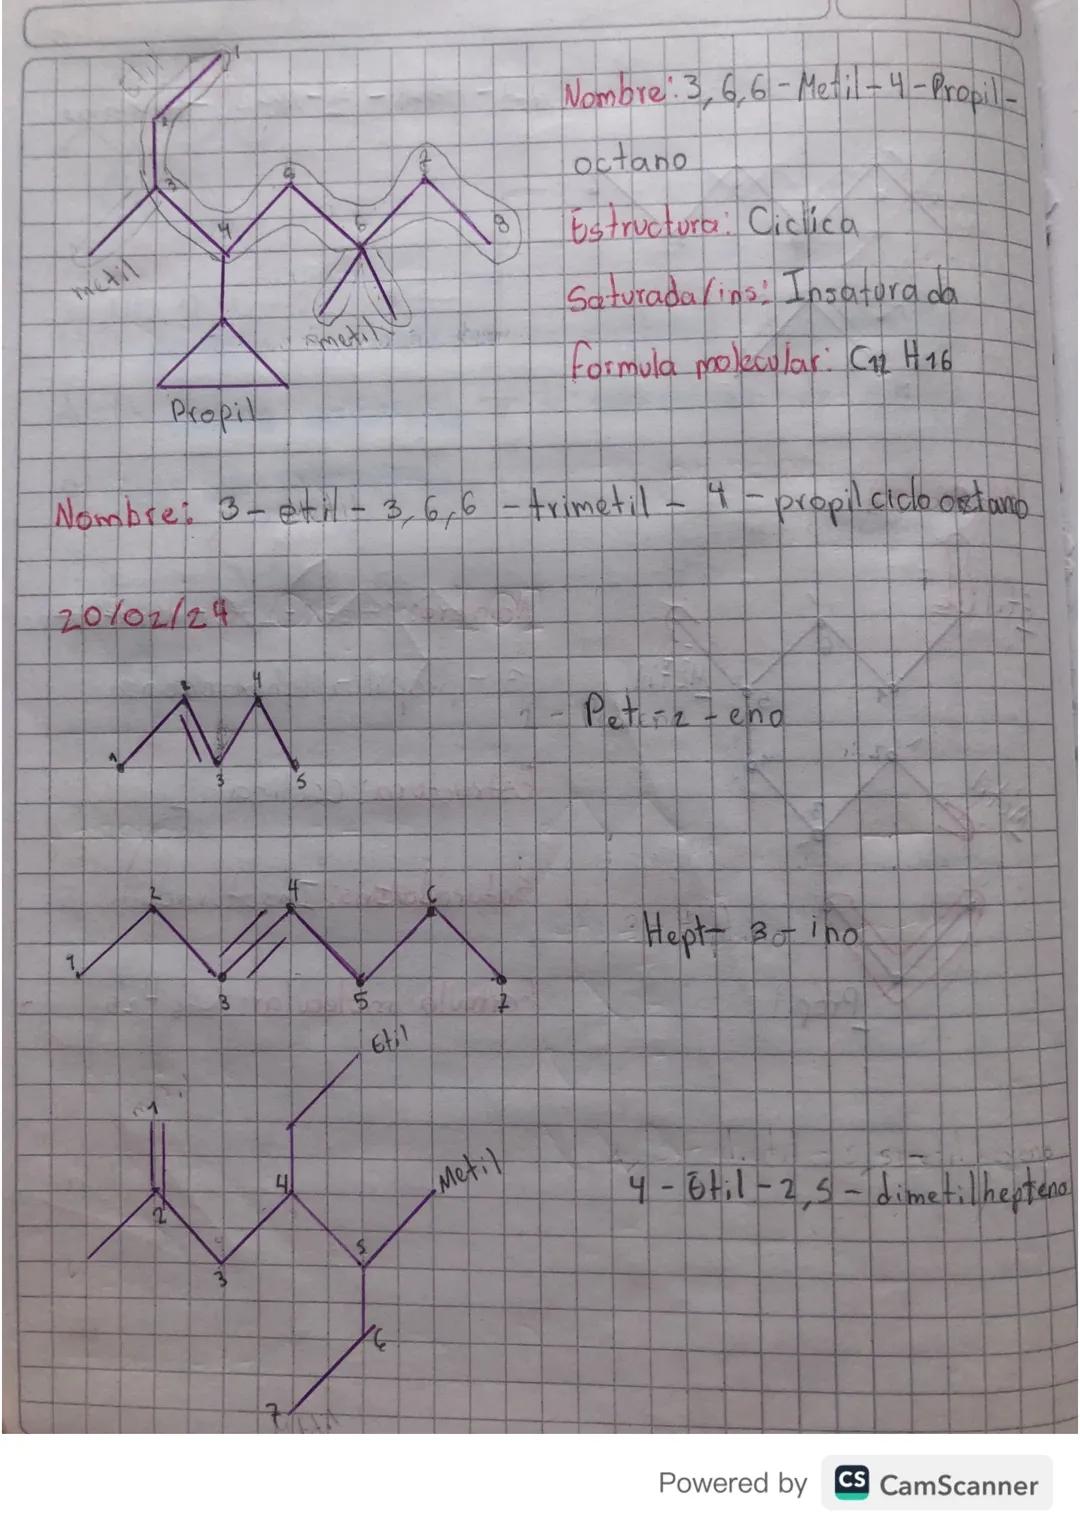 Nombre: 3, 6, 6 - Metil - 4 - Propil -
octano
Estructura: Ciclica
Saturada/ins: Insaturada
formula molecular: C12 H16
1
2
3
4
6
7
8
metil
metil
Propil
Nombre: 3 - etil - 3, 6, 6 - trimetil - 4 - propil ciclo octano
20/02/24
1
2
3
4
5
Pet - 2 - eno
1
2
3
4
5
6
7
Hept - 3 - ino
Etil
1
2
3
4
5
6
7
Metil
4 - Etil - 2, 5 - dimetilhepteno
Powered by CS CamScanner